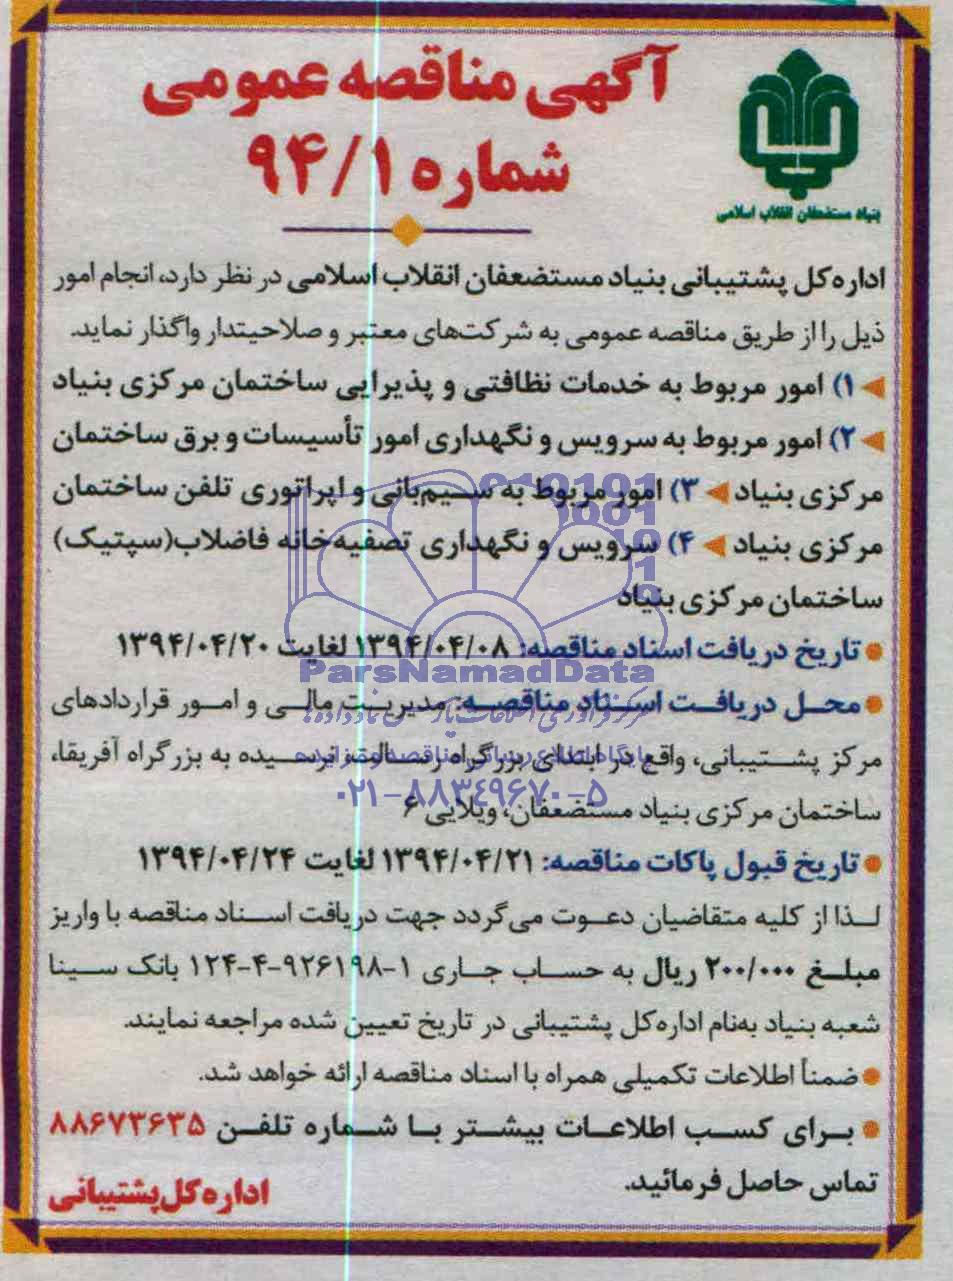 آگهی مناقصه عمومی
شماره ۹۴/۱
بنیاد مستضعفان انقلاب اسلامی
اداره کل پشتیبانی بنیاد مستضعفان انقلاب اسلامی در نظر دارد، انجام امور
ذیل را از طریق مناقصه عمومی به شرکت‌های معتبر و صلاحیتدار واگذار نماید.
۱) امور مربوط به خدمات نظافتی و پذیرایی ساختمان مرکزی بنیاد
۲) امور مربوط به سرویس و نگهداری امور تأسیسات و برق ساختمان
مرکزی بنیاد ۳) امور مربوط به سیم‌بانی و اپراتوری تلفن ساختمان
مرکزی بنیاد ۴) سرویس و نگهداری تصفیه‌خانه فاضلاب(سپتیک)
ساختمان مرکزی بنیاد
تاریخ دریافت اسناد مناقصه: ۱۳۹۴/۰۴/۰۸ لغایت ۱۳۹۴/۰۴/۲۰
ParsNamadData
محل دریافت اسناد مناقصه: مدیریت مالی و امور قراردادهای
مرکز پشتیبانی، واقع در ابتدای بزرگراه رسالت، نرسیده به بزرگراه آفریقا،
۰۲۱-۸۸۳۴۹۶۷۰-۵
ساختمان مرکزی بنیاد مستضعفان، ویلایی ۶
تاریخ قبول پاکات مناقصه: ۱۳۹۴/۰۴/۲۱ لغایت ۱۳۹۴/۰۴/۲۴
لذا از کلیه متقاضیان دعوت می‌گردد جهت دریافت اسناد مناقصه با واریز
مبلغ ۲۰۰/۰۰۰ ریال به حساب جاری ۱-۹۲۶۱۹۸-۴-۱۲۴ بانک سینا
شعبه بنیاد به‌نام اداره‌کل پشتیبانی در تاریخ تعیین شده مراجعه نمایند.
ضمناً اطلاعات تکمیلی همراه با اسناد مناقصه ارائه خواهد شد.
برای کسب اطلاعات بیشتر با شماره تلفن ۸۸۶۷۳۶۳۵
تماس حاصل فرمائید.
اداره کل پشتیبانی